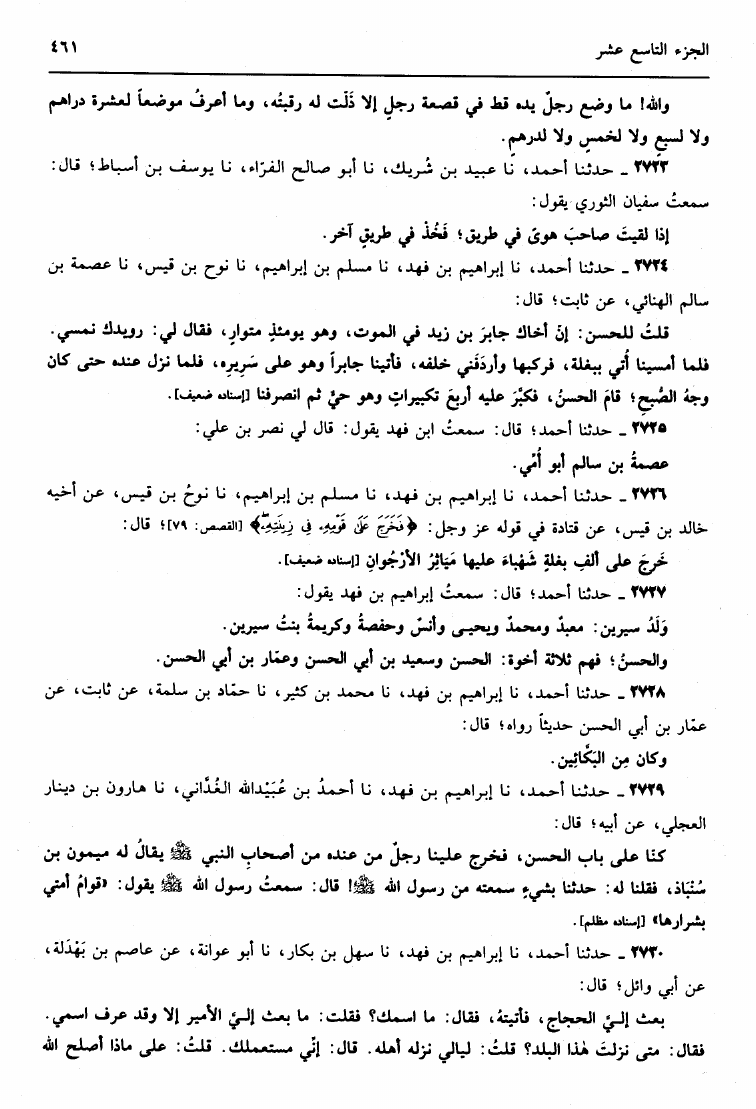 الجزء التاسع عشر
٤٦١
والله! ما وضع رجلٌ يده قط في قصعة رجلٍ إلا ذَلَّت له رقبتُه، وما أعرفُ موضعاً لعشرة دراهم
ولا لسبعٍ ولا لخمسٍ ولا لدرهمٍ.
٢٧٢٣ ـ حدثنا أحمد، نا عبيد بن شَريك، نا أبو صالح الفرّاء، نا يوسف بن أسباط؛ قال:
سمعتُ سفيان الثوري يقول:
إذا لقيتَ صاحبَ هوىً في طريق؛ فَخُذْ في طريقٍ آخر.
٢٧٢٤ ـ حدثنا أحمد، نا إبراهيم بن فهد، نا مسلم بن إبراهيم، نا نوح بن قيس، نا عصمة بن
سالم الهنائي، عن ثابت؛ قال:
قلتُ للحسن: إنّ أخاك جابرَ بن زيد في الموت، وهو يومئذٍ متوارٍ، فقال لي: رويدك نمسي.
فلما أمسينا أُتي ببغلة، فركبها وأردَفَني خلفه، فأتينا جابراً وهو على سَرِيرِه، فلما نزل عنده حتى كان
وجهُ الصُّبحِ؛ قامَ الحسنُ، فكبَّرَ عليه أربعَ تكبيراتٍ وهو حيٌّ ثم انصرفنا [إسناده ضعيف].
٢٧٢٥ ـ حدثنا أحمد؛ قال: سمعتُ ابن فهد يقول: قال لي نصر بن علي:
عصمةُ بن سالم أبو أُمِّي.
٢٧٢٦ ـ حدثنا أحمد، نا إبراهيم بن فهد، نا مسلم بن إبراهيم، نا نوحُ بن قيس، عن أخيه
خالد بن قيس، عن قتادة في قوله عز وجل: ﴿فَخَرَجَ عَلَىٰ قَوْمِهِۦ فِى زِينَتِهِۦ﴾ [القصص: ٧٩]؛ قال:
خَرجَ على ألفِ بغلةٍ شَهْباءَ عليها مَيَاثِرُ الأُرْجُوانِ [إسناده ضعيف].
٢٧٢٧ ـ حدثنا أحمد؛ قال: سمعتُ إبراهيم بن فهد يقول:
وَلَدُ سيرين: معبدٌ ومحمدٌ ويحيـى وأنسٌ وحفصةُ وكريمةُ بنتُ سيرين.
والحسنُ؛ فهم ثلاثة أخوة: الحسن وسعيد بن أبي الحسن وعمَّار بن أبي الحسن.
٢٧٢٨ ـ حدثنا أحمد، نا إبراهيم بن فهد، نا محمد بن كثير، نا حمّاد بن سلمة، عن ثابت، عن
عمّار بن أبي الحسن حديثاً رواه؛ قال:
وكان مِن البَكّائين.
٢٧٢٩ ـ حدثنا أحمد، نا إبراهيم بن فهد، نا أحمدُ بن عُبَيْدالله الغُدَّاني، نا هارون بن دينار
العجلي، عن أبيه؛ قال:
كنّا على باب الحسن، فخرج علينا رجلٌ من عنده من أصحابِ النبي ﷺ يقالُ له ميمون بن
سُنْبَاذ، فقلنا له: حدثنا بشيءٍ سمعته من رسول الله ﷺ! قال: سمعتُ رسول الله ﷺ يقول: «قوامُ أمتي
بشرارها» [إسناده مظلم].
٢٧٣٠ ـ حدثنا أحمد، نا إبراهيم بن فهد، نا سهل بن بكار، نا أبو عوانة، عن عاصم بن بَهْدَلة،
عن أبي وائل؛ قال:
بعث إليَّ الحجاج، فأتيتهُ، فقال: ما اسمك؟ فقلت: ما بعث إليَّ الأمير إلا وقد عرف اسمي.
فقال: متى نزلتَ هٰذا البلد؟ قلتُ: ليالي نزله أهله. قال: إنّي مستعملك. قلتُ: على ماذا أصلح الله